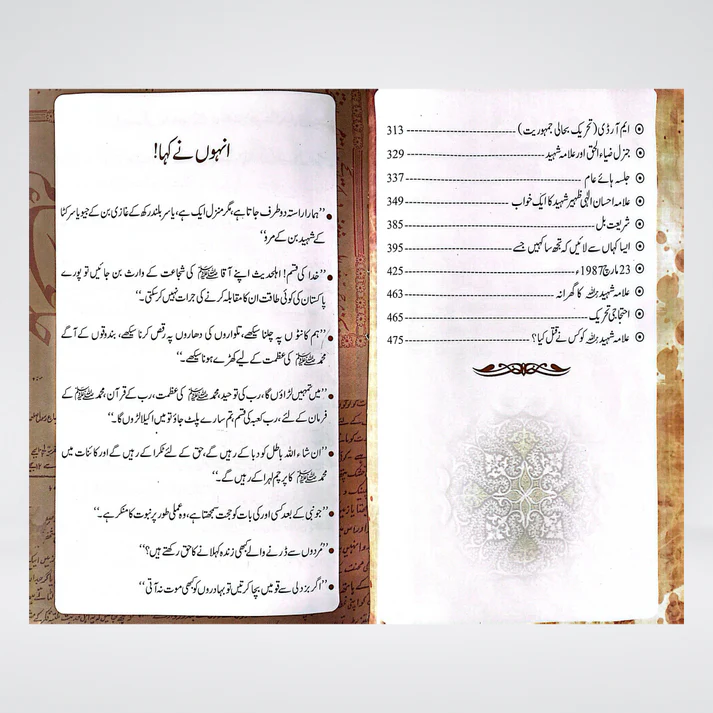 ایم آر ڈی (تحریک بحالی جمہوریت) 313
جنرل ضیاء الحق اور علامہ شہید 329
جلسہ ہائے عام 337
علامہ احسان الٰہی ظہیر شہید کا ایک خواب 349
شریعت بل 385
ایسا کہاں سے لائیں کہ تجھ سا کہیں جسے 395
23 مارچ 1987ء 425
علامہ شہید رحمہ اللہ کا گھرانہ 463
احتجاجی تحریک 465
علامہ شہید رحمہ اللہ کو کس نے قتل کیا؟ 475
انہوں نے کہا!
”ہمارا راستہ دو طرف جاتا ہے، مگر منزل ایک ہے، یا سر بلند رکھ کے غازی بن کے جیو یا سر کٹا
کے شہید بن کے مرو“
”خدا کی قسم! اہلحدیث اپنے آقا ﷺ کی شجاعت کے وارث بن جائیں تو پورے
پاکستان کی کوئی طاقت ان کا مقابلہ کرنے کی جرات نہیں کر سکتی۔“
”ہم کانٹوں پہ چلنا سیکھے، تلواروں کی دھاروں پہ رقص کرنا سیکھے، بندوقوں کے آگے
محمد ﷺ کی عظمت کے لیے کھڑے ہونا سیکھے۔“
”میں تمہیں لڑاؤں گا، رب کی توحید، محمد ﷺ کی عظمت، رب کے قرآن، محمد ﷺ کے
فرمان کے لئے، رب کعبہ کی قسم، تم سارے پلٹ جاؤ تو میں اکیلا لڑوں گا۔“
”ان شاء اللہ باطل کو دبا کے رہیں گے، حق کے لئے ٹکرا کے رہیں گے اور کائنات میں
محمد ﷺ کا پرچم لہرا کے رہیں گے۔“
”جو نبی کے بعد کسی اور کی بات کو حجت سمجھتا ہے، وہ عملی طور پر نبوت کا منکر ہے۔“
”مُردوں سے ڈرنے والے کبھی زندہ کہلانے کا حق رکھتے ہیں؟“
”اگر بزدلی سے قومیں بچا کرتیں تو بہادروں کو کبھی موت نہ آتی“